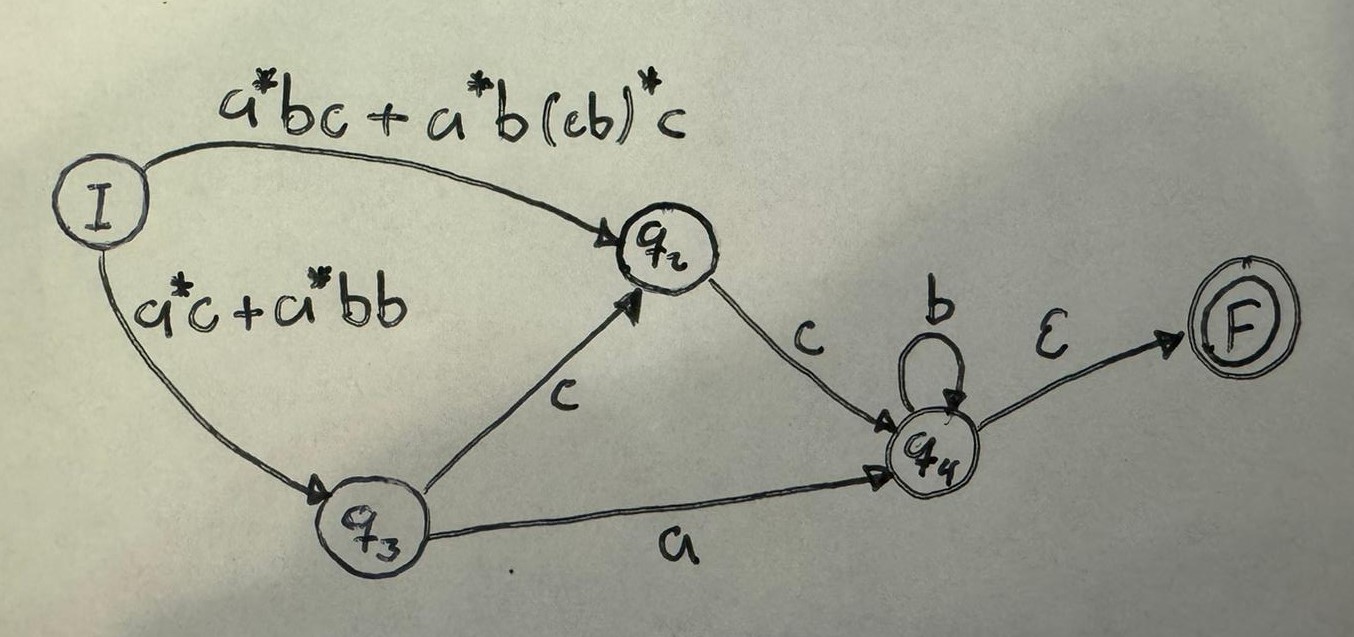 a*bc + a*b(cb)*c
I
q₂
a*c + a*bb
b
c
ε
F
c
q₄
q₃
a